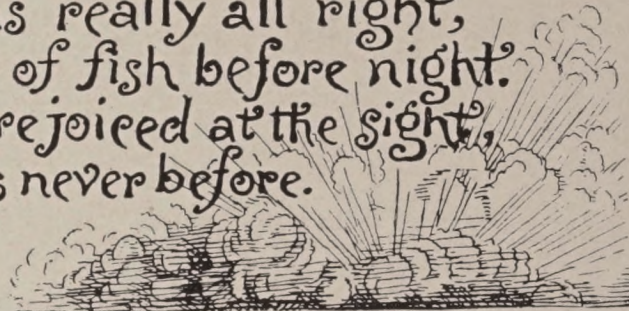 s really all right,
of fish before night.
rejoiced at the sight,
s never before.